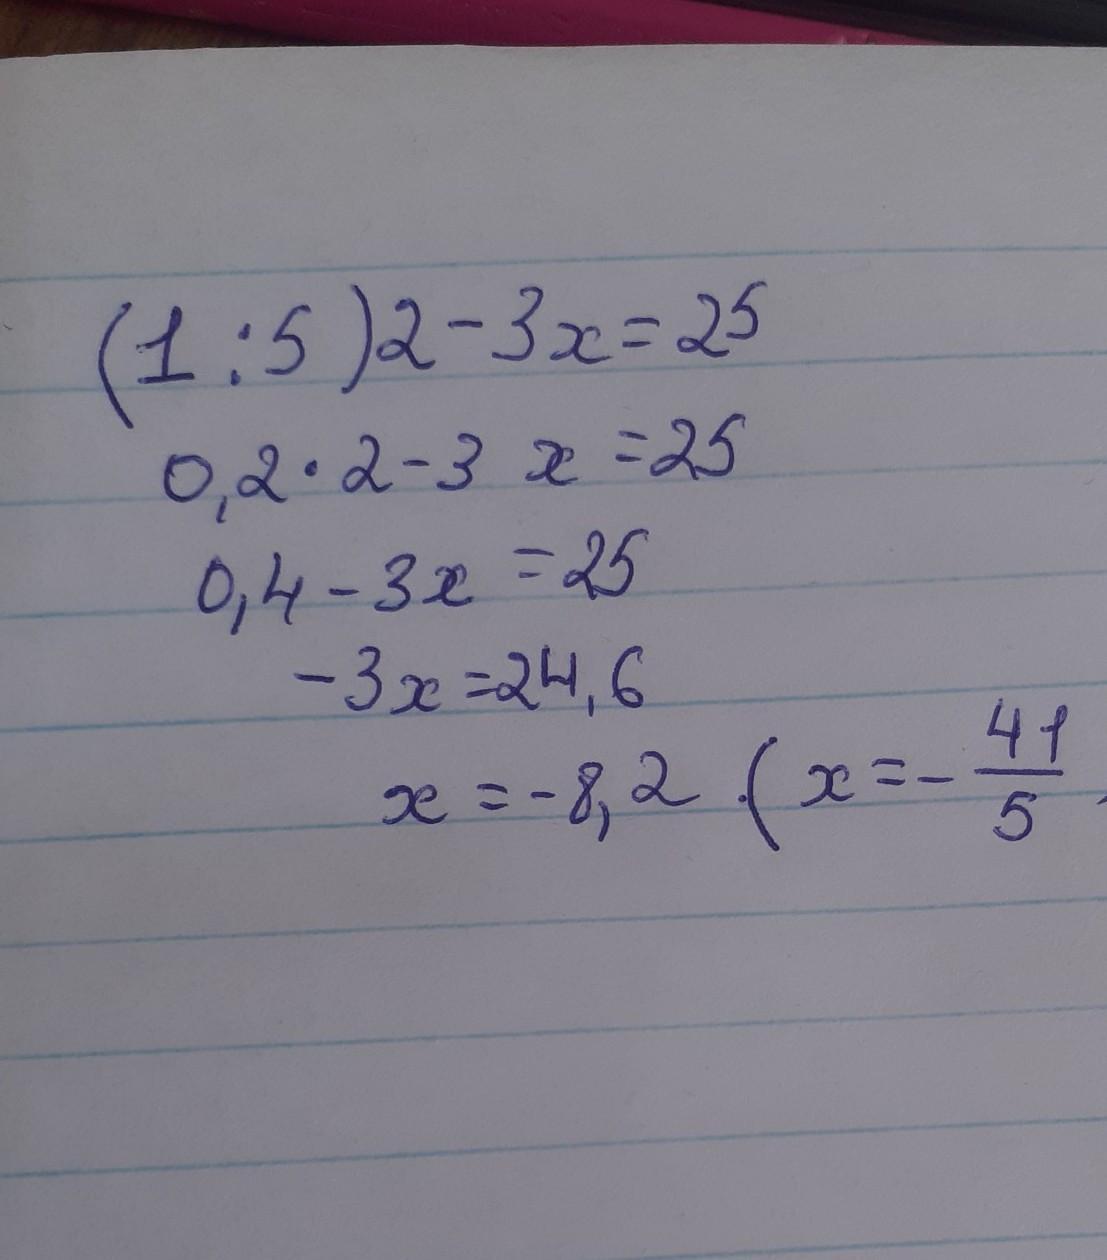 (1:5)2-3x=25
0,2·2-3 x=25
0,4-3x=25
-3x=24,6
x=-8,2 (x=-41/5